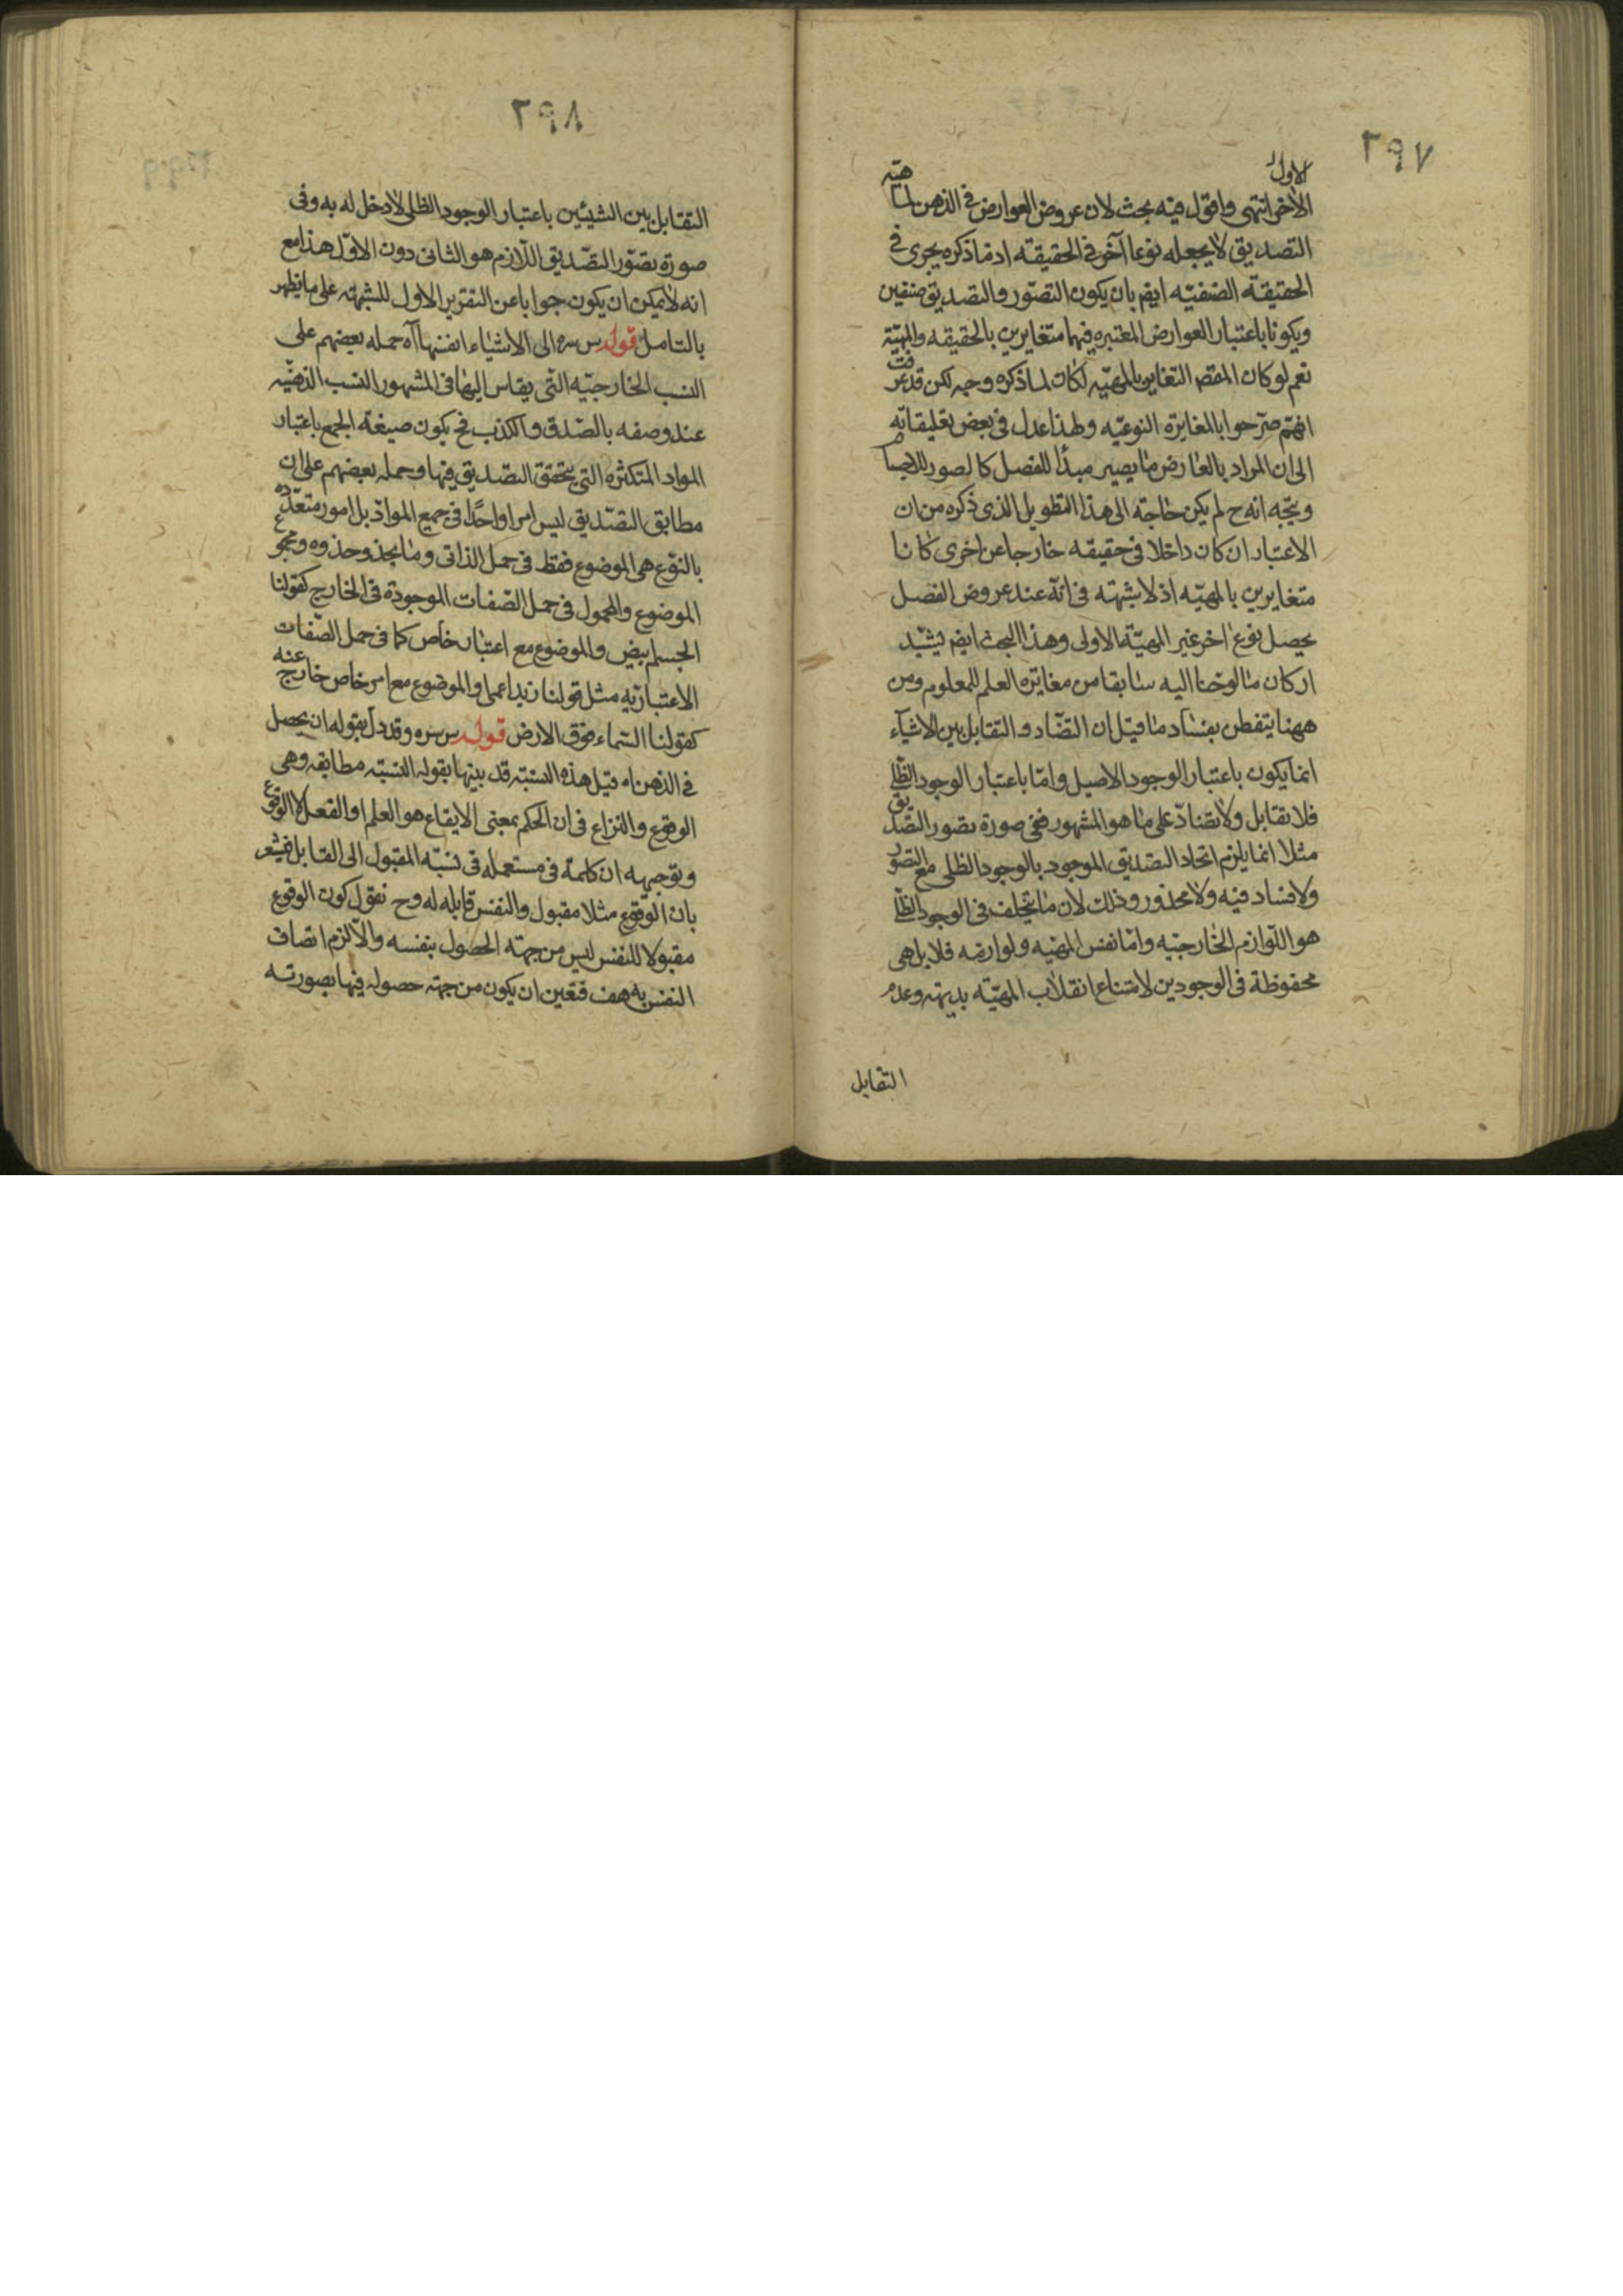 ٢٩٧
الاول
الاخر انتهى واقول فيه بحث لان عروض العوارض فى الذهن لماهية
التصديق لا يجعله نوعا آخر فى الحقيقة اذ ما ذكره يجرى فى
الحقيقة الصنفيه ايضا بان يكون التصور والتصديق صنفين
ويكونا باعتبار العوارض المعتبره فيهما متغايرين بالحقيقه والمهيّة
نعم لو كان المقصد التغاير بالمهيّه لكان لما ذكره وجه لكن قد عرفت
انهم صرّحوا بالمغايرة النوعيّه ولهذا عدل فى بعض تعليقاته
الى ان المراد بالعارض ما يصير مبدأ للفصل كالصور للاجسام
ويتجه انه ح لم يكن حاجة الى هذا التطويل الذى ذكره من ان
الاعتبار ان كان داخلا فى حقيقه خارجا عن اخرى كانا
متغايرين بالمهيّه اذ لا شبهته فى انّه عند عروض الفصل
يحصل نوع اخر غير المهيّة الاولى وهذا البحث ايضا يشيّد
اركان ما لوحنا اليه سابقا من مغايرة العلم للمعلوم ومن
ههنا يتفطن بفساد ما قيل ان التضّاد والتقابل بين الاشيآء
انما يكون باعتبار الوجود الاصيل وامّا باعتبار الوجود الظلى
فلا تقابل ولا تضادّ على ما هو المشهور ففى صورة تصور التصديق
مثلا انما يلزم اتحاد التصديق الموجود بالوجود الظلى مع التصور
ولا فساد فيه ولا محذور وذلك لان ما يتخلف فى الوجود الظلى
هو اللوازم الخارجيّه وامّا نفس المهيّه ولوازمه فلا بل هى
محفوظة فى الوجودين لامتناع انقلاب المهيّه بديهة وعدم
التقابل
٢٩٨
التقابل بين الشيئين باعتبار الوجود الظلى لا دخل له به وفى
صورة تصوّر التصّديق اللّازم هو الثانى دون الاوّل هذا مع
انه لا يمكن ان يكون جوابا عن التقرير الاول للشبهته على ما يظهر
بالتامل قوله س سره الى الاشياء انفسها آه حمله بعضهم على
النسب الخارجيّه التى يقاس اليها فى المشهور النسب الذهنيّه
عند وصفه بالصّدق والكذب فح يكون صيغة الجمع باعتبار
المواد المتكثره التى يتحقق التصديق فيها وحمله بعضهم على ان
مطابق التصّديق ليس امرا واحدًا فى جميع الموادّ بل امور متعدّده
بالنوّع هى الموضوع فقط فى حمل الذاتى وما يحذو حذوه ومجموع
الموضوع والمحمول فى حمل الصّفات الموجودة فى الخارج كقولنا
الجسم ابيض والموضوع مع اعتبار خاص كما فى حمل الصّفات
الاعتباريّه مثل قولنا زيد اعمى او الموضوع مع امر خاص خارج عنه
كقولنا السّماء فوق الارض قوله س سره وقد دل بقوله ان يحصل
فى الذهن اه قيل هذه النسبته قد بينها بقوله النسبّه مطابقه وهى
الوقوع والنزاع فى ان الحكم بمعنى الايقاع هو العلم او الفعل لا الوقوع
وتوجيهه ان كلمة فى مستعمله فى نسبّه المقبول الى القابل فيشعر
بان الوقوع مثلا مقبول والنفس قابله له وح نقول كون الوقوع
مقبولا للنفس ليس من جهته الحصول بنفسه والّا لزم اتصاف
النفس به هف فتعين ان يكون من جهته حصوله فيها بصورته